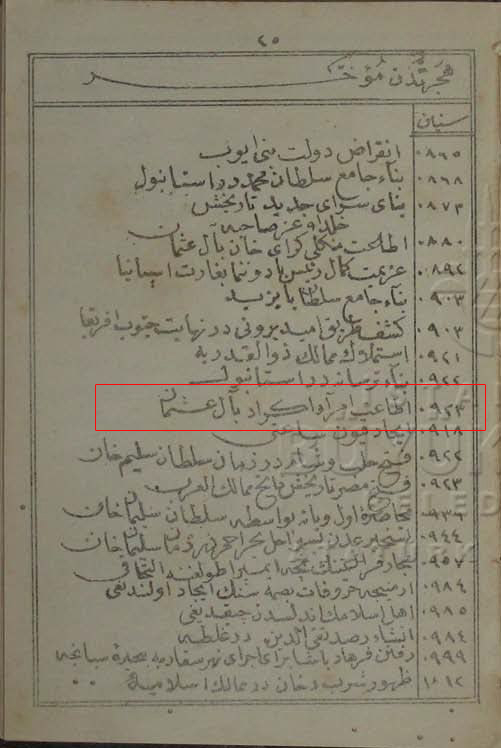 ٢٥
هجرتدن مؤخر
سنیان
٠٨٦٥ انقراض دولت بنی ایوب
٠٨٦٨ بناء جامع سلطان محمد در استانبول
٠٨٧٣ بنای سرای جدید تاریخش
خلد الله عز صاحبه
٠٨٨٠ اطاعت منکلی کرای خان بآل عثمان
٠٨٩٢ عزیمت کمال رئیس با دوننما بغارت اسپانیا
٠٩٠٣ بناء جامع سلطان بایزید
٠٩٠٣ کشف طریق امید برونی در نهایت جنوب افریقا
٠٩٢١ استملاک ممالک ذو القدریه
٠٩٢٢ بناء ترسانه در استانبول
٠٩٢٤ اطاعت امرآء اکراد بآل عثمان
٠٩١٨ ایجاد قیون ساعتی
٠٩٢٢ فتح حلب و شام در زمان سلطان سلیم خان
٠٩٢٣ فتح مصر تاریخش فاتح ممالک العرب
٠٩٣٦ محاصرۀ اول ویانه بواسطه سلطان سلیمان خان
٠٩٤٤ تسخیر عدن سواحل بحر احمر در زمان سلیمان خان
٠٩٥٧
٠٩٨٤ سنک ایجاد اولندیغی
٠٩٨٥ اهل اسلامک اندلسدن چیقدیغی
٠٩٨٤ انشاء رصد تقی الدین در غلطه
٠٩٩٩ رفتن فرهاد پاشا برای اجرای نهر سقاریه ببحیرۀ سبانجه
١٠١٢ ظهور شرب دخان در ممالک اسلامیه